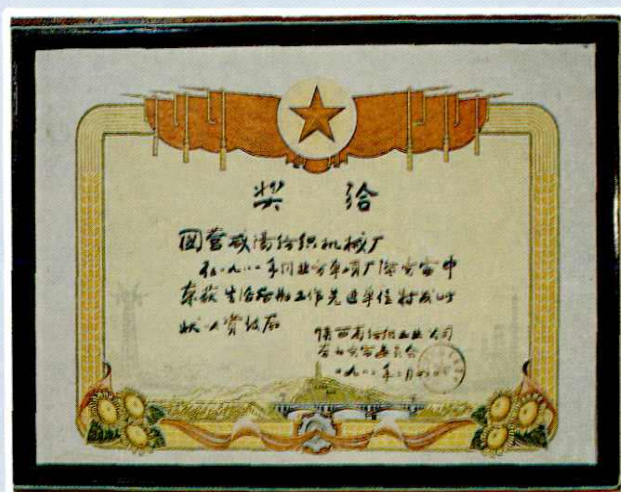 奖 给
国营咸阳纺织机械厂
在一九八一年同业竞赛厂际竞赛中
荣获生活后勤工作先进单位特发此
状以资鼓励
陕西省纺织工业公司
劳动竞赛委员会
一九八二年二月